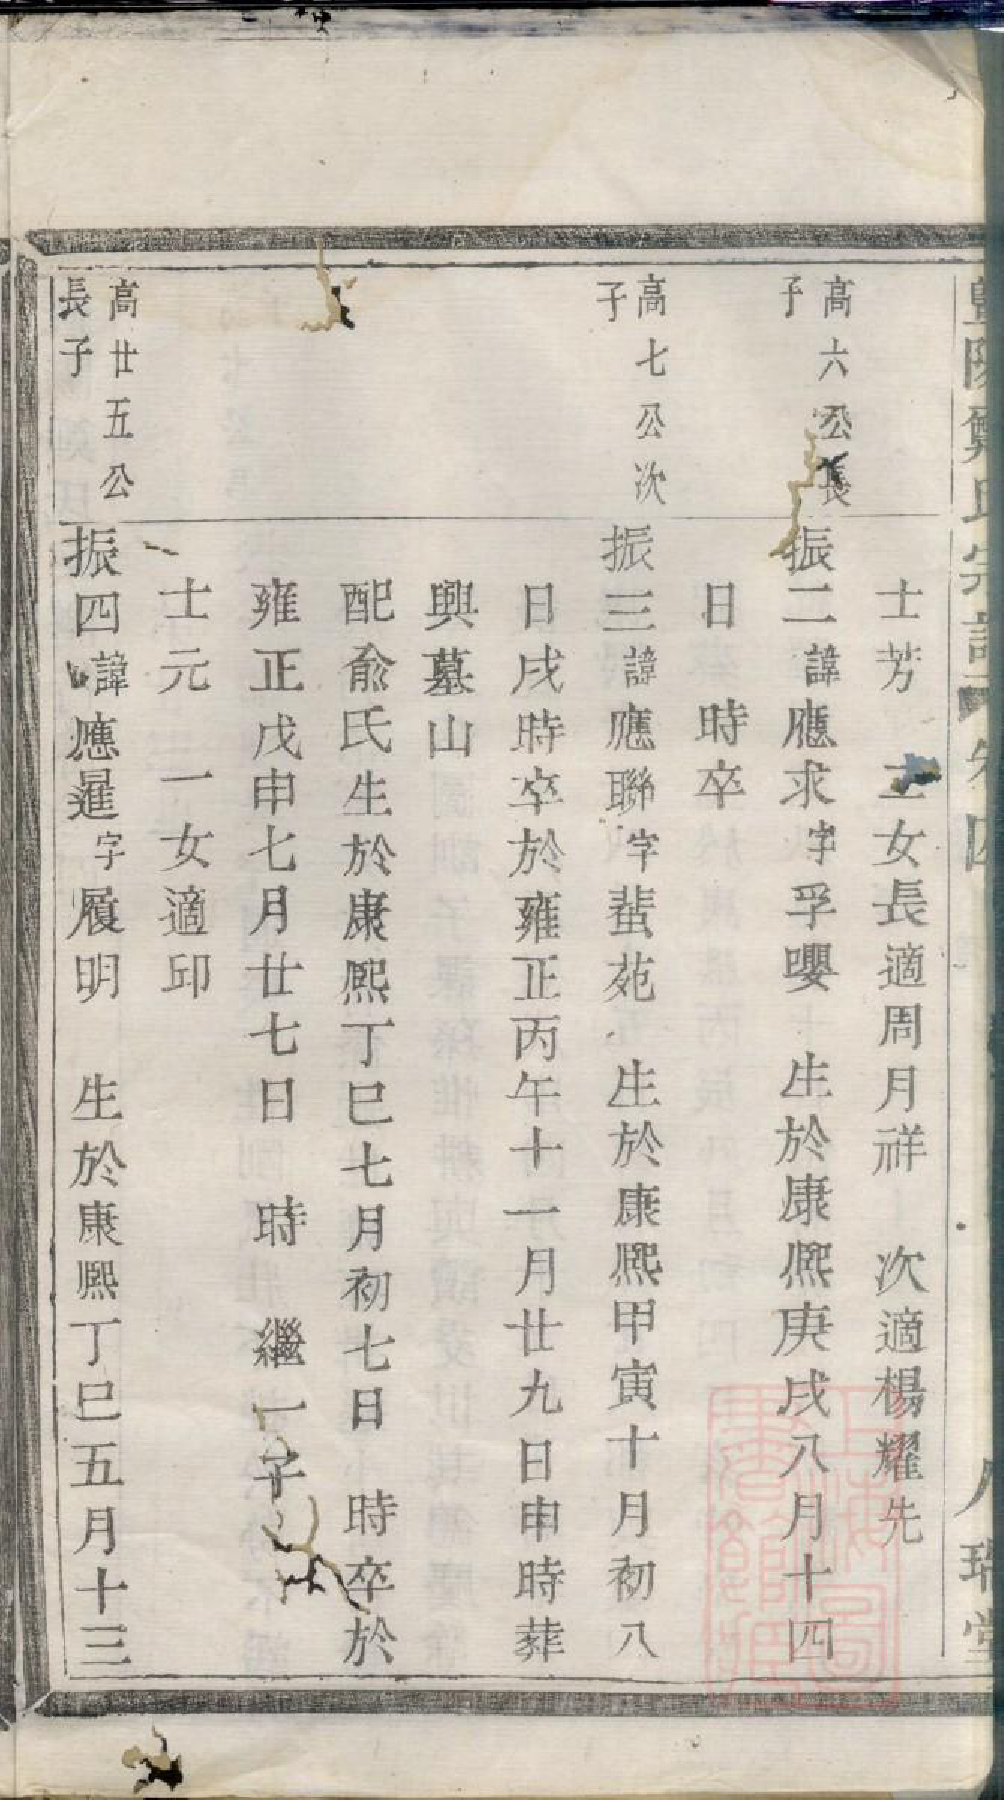 暨陽鄭氏宗譜 卷四 八 瑞 堂
士芳 二女長適周月祥 次適楊耀先
高六公長
子
振二諱應求字孚嚶 生於康熙庚戌八月十四
日 時卒
高七公次
子
振三諱應聯字蜚苑 生於康熙甲寅十月初八
日戌時卒於雍正丙午十一月廿九日申時葬
興墓山
配俞氏生於康熙丁巳七月初七日 時卒於
雍正戊申七月廿七日 時 繼一子
士元 一女適邱
高廿五公
長子
振四諱應暹字履明 生於康熙丁巳五月十三